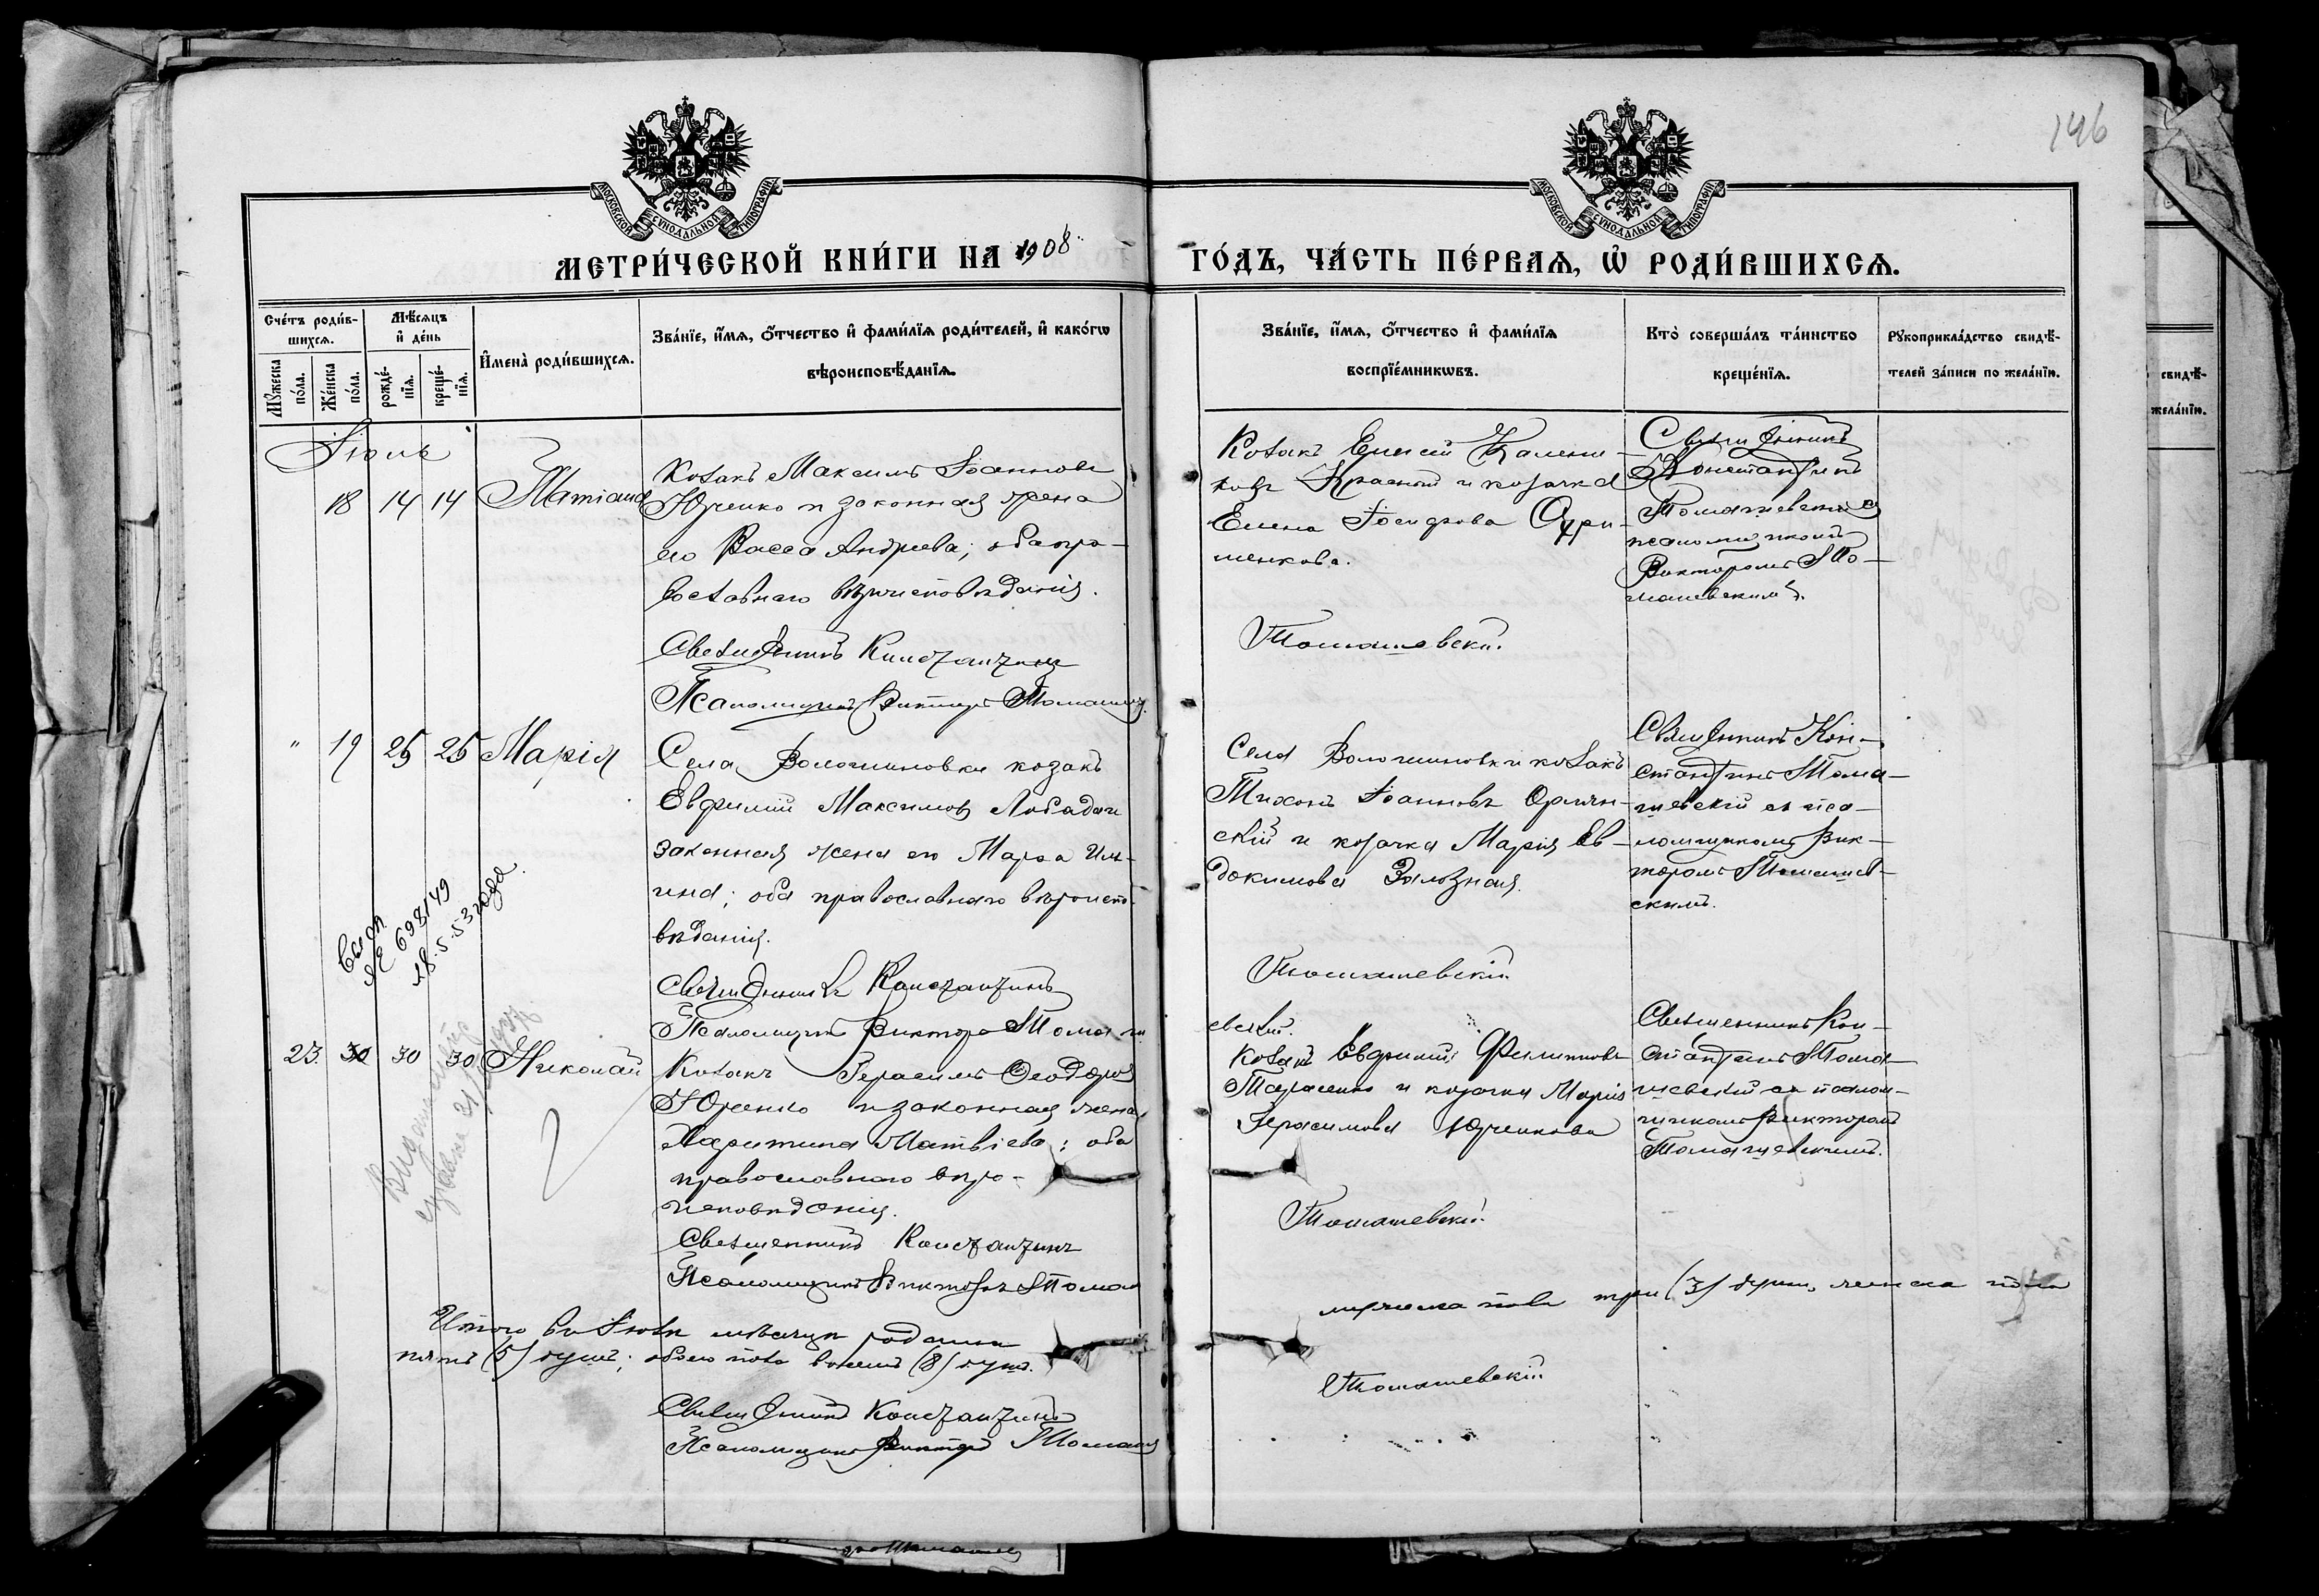 146
МОСКОВСКОЙ СѴНОДАЛЬНОЙ ТИПОГРАФІИ
МОСКОВСКОЙ СѴНОДАЛЬНОЙ ТИПОГРАФІИ
МЕТРИ́ЧЕСКОЙ КНИ́ГИ НА 1908
ГО́ДЪ, ЧА́СТЬ ПЕ́РВАѦ, Ѡ҆ РОДИ́ВШИХСѦ.
Сче́тъ роди́в-
шихсѧ.
Мꙋ́жеска
по́ла.
Же́нска
по́ла.
Мѣ́сѧцъ
и҆ де́нь
рожде́-
нїѧ.
креще́-
нїѧ.
И҆мена̀ роди́вшихсѧ.
Зва́нїе, и҆́мѧ, ѻ҆́тчество и҆ фами́лїѧ роди́телей, и҆ како́гѡ
вѣроисповѣ́данїѧ.
Зва́нїе, и҆́мѧ, ѻ҆́тчество и҆ фами́лїѧ
воспрїе́мникѡвъ.
Кто̀ соверша́лъ та́инство
креще́нїѧ.
Рꙋкоприкла́дство свидѣ́-
телей за́писи по жела́нїю.
Іюль
18 14 14 Татіана
Козакъ Максимъ Іоанновъ
Юрченко и законная жена
его Васса Андреева; оба пра-
вославнаго вѣроисповѣданія.
Священникъ Константинъ
Псаломщикъ Викторъ Томаш
Козакъ Елисей
и козачка
Елена
Священникъ
Константинъ
Томашевскій съ
псаломщикомъ
Викторомъ То-
машевскимъ.
Томашевскій.
" 19 25 25 Марія
Села Волошиновки козакъ
Евфимій Максимовъ
законная жена его Марѳа Иль-
ина; оба православнаго вѣроиспо-
вѣданія.
Священникъ Константинъ
Псаломщикъ Викторъ Томаш
Села Волошиновки козакъ
Тихонъ Іоанновъ
скій и козачка Марія Ев-
докимова
Священникъ Кон-
стантинъ Тома-
шевскій съ пса-
ломщикомъ Вик-
торомъ Томашев-
скимъ.
Томашевскій.
евскій.
698149
18.5.53 года.
23 30 30 30 Николай
Козакъ Герасимъ Ѳеодоровъ
Юрченко и законная жена
Харитина Матвіева; оба
православнаго вѣро-
исповѣданія.
Священникъ Константинъ
Псаломщикъ Викторъ Томаш
Козакъ Евфимій Филипповъ
Тарасенко и козачка Марія
Герасимова Юрченкова
Священникъ Кон-
стантинъ Тома-
шевскій съ псалом-
щикомъ Викторомъ
Томашевскимъ.
Томашевскій.
Итого въ Іюлѣ мѣсяцѣ родилось
мужеска пола три (3) души, женска пола
пять (5) душъ; обоего пола восемь (8) душъ.
Священникъ Константинъ
Псаломщикъ Викторъ Томаш
Томашевскій.
свидѣ́-
жела́нїю.